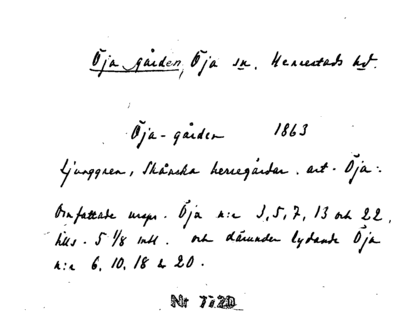 Öja gården, Öja sn. Herrestads hd.
Öja-gården 1863
Ljunggren, Skånska herregårdar. art. Öja:
Omfattade urspr. Öja n:r 3, 5, 7, 13 och 22,
tills. 5 1/8 mtl. och därunder lydande Öja
n:r 6, 10, 18 & 20.
Nr 7720